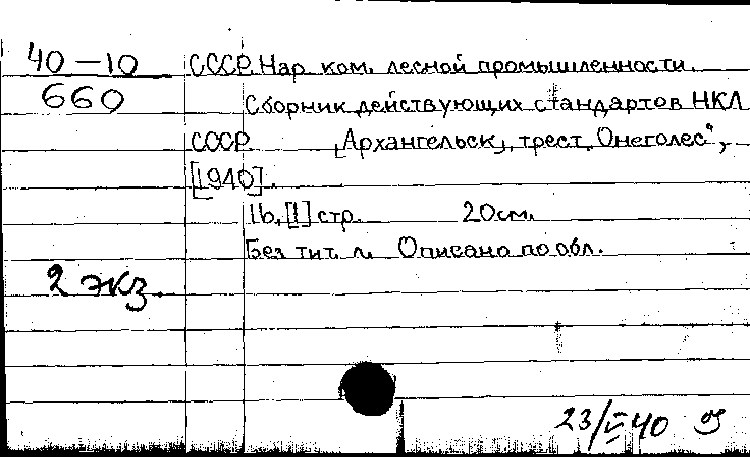 40-10 СССР. Нар. ком. лесной промышленности.
660 Сборник действующих стандартов НКЛ
СССР. [Архангельск], трест „Онеголес",
[1940].
16, [1] стр. 20см.
Без тит. л. Описано по обл.
2 экз.
23/II 40